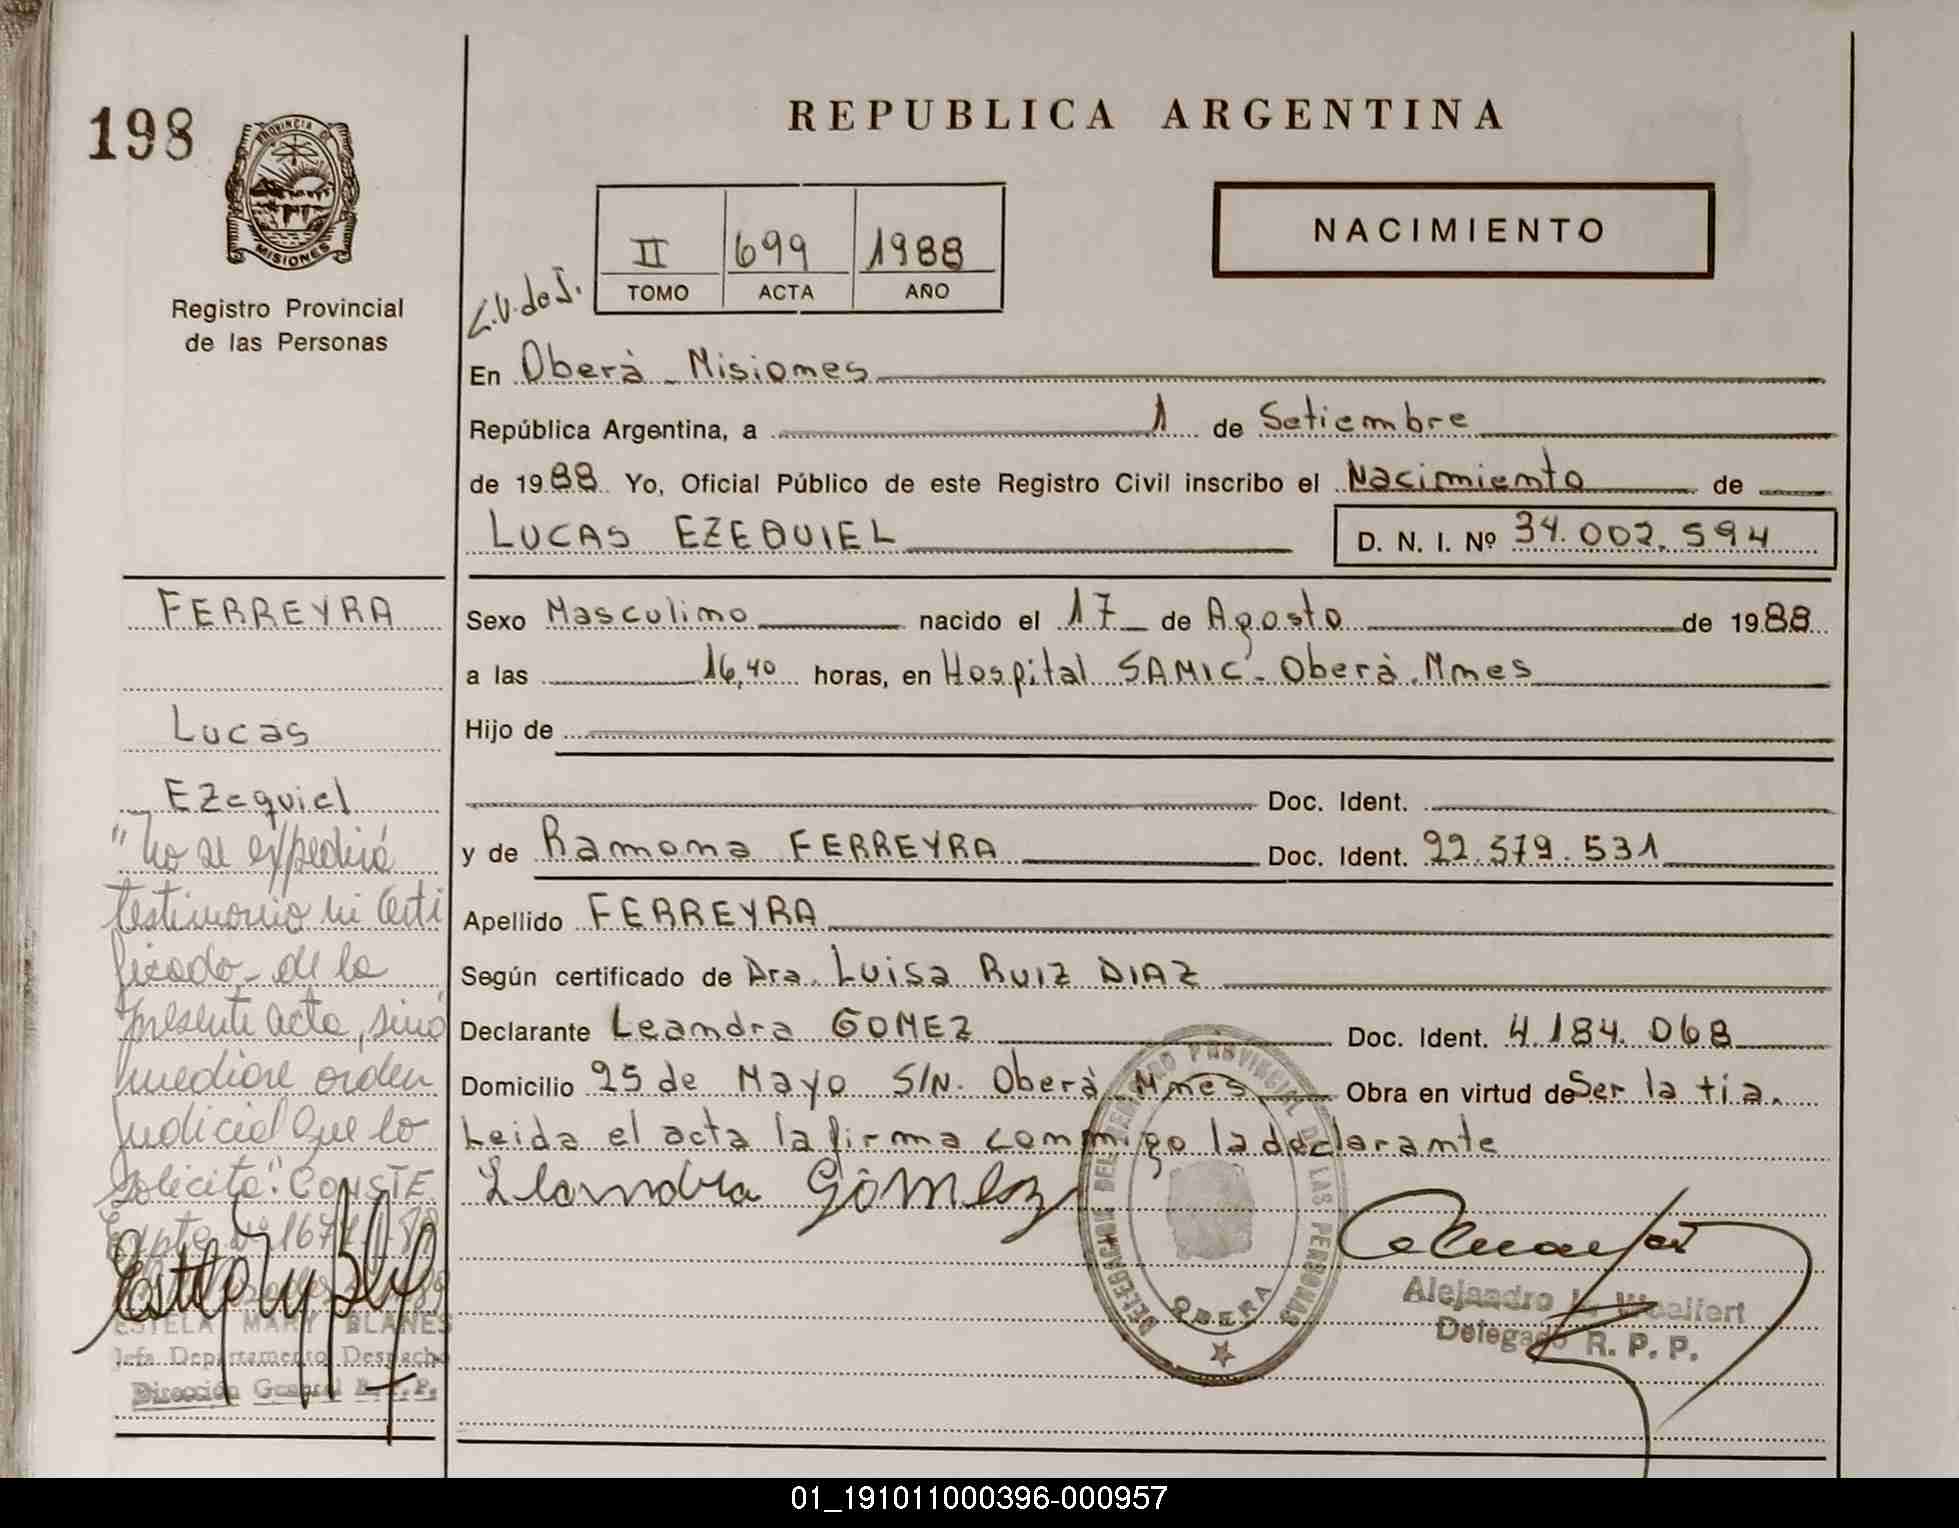 198
PROVINCIA DE
MISIONES
Registro Provincial
de las Personas
REPUBLICA ARGENTINA
II 699 1988
TOMO ACTA AÑO
NACIMIENTO
En Oberà - Misiones
República Argentina, a 1 de Setiembre
de 1988 Yo, Oficial Público de este Registro Civil inscribo el Nacimiento de
LUCAS EZEQUIEL D. N. I. Nº 34.002.594
FERREYRA
Lucas
Ezequiel
"No se expedirá
testimonio ni Certi
ficado - de la
presente acta, sinó
mediare orden
Judicial que lo
solicite". CONSTE
ESTELA MARY BLANES
Jefa Departamento Despacho
Dirección General R.P.P.
Sexo Masculino nacido el 17 de Agosto de 1988
a las 16,40 horas, en Hospital SAMIC - Oberà. Mnes
Hijo de
Doc. Ident.
y de Ramona FERREYRA Doc. Ident. 22.379.531
Apellido FERREYRA
Según certificado de Dra. Luisa RUIZ DIAZ
Declarante Leandra GOMEZ Doc. Ident. 4.184.068
Domicilio 25 de Mayo S/N. Oberà Mnes Obra en virtud de Ser la tia.
Leida el acta la firma conmigo la declarante
Leandra Gomez
DELEGACION DEL REGISTRO PROVINCIAL DE LAS PERSONAS
OBERA
Alejandro Woelfert
Delegado R. P. P.
01_191011000396-000957